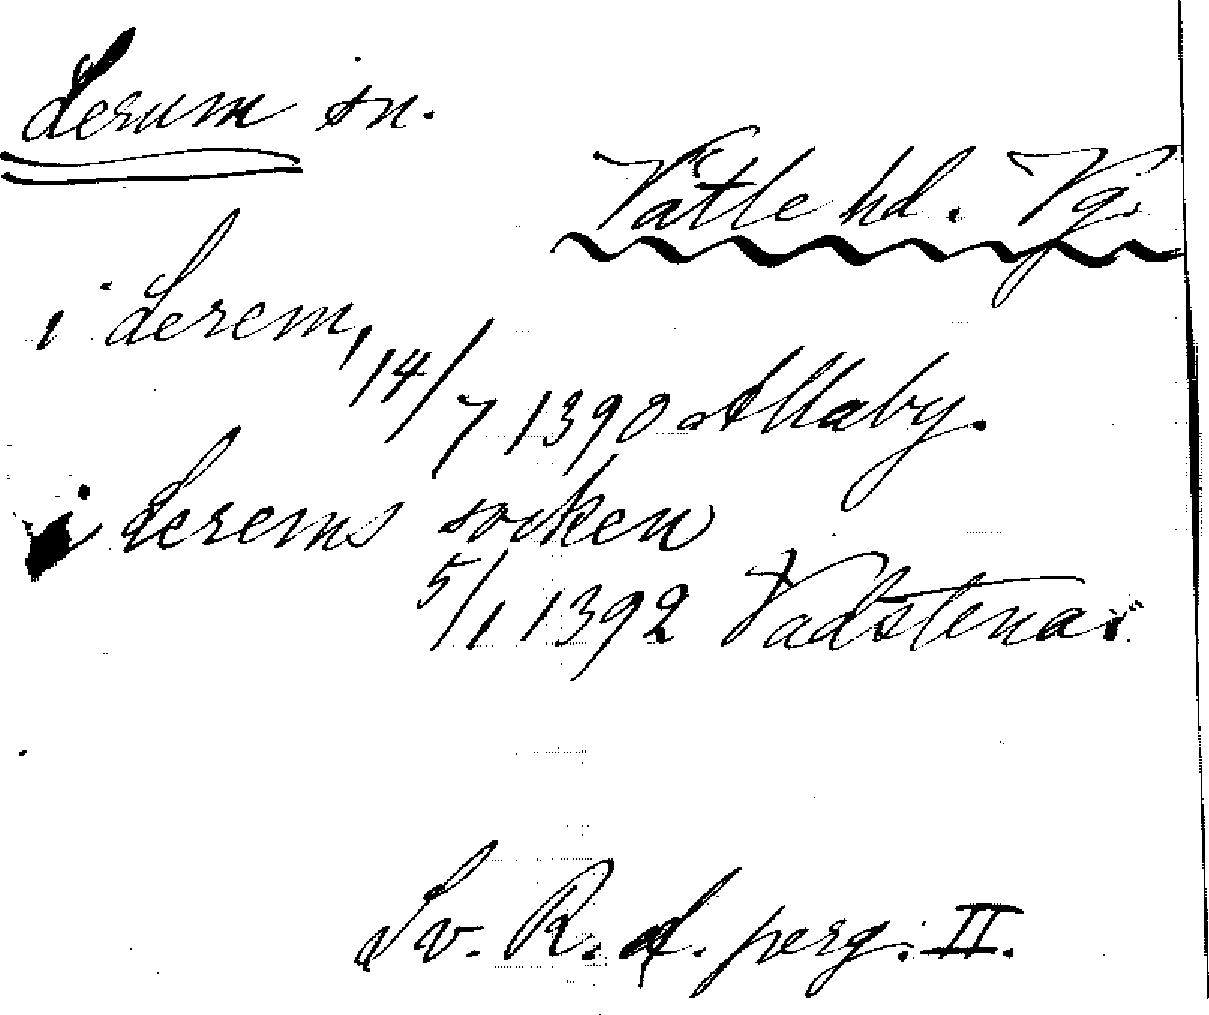 Lerum sn.
Vättle hd. Vg.
i Lerem, 14/7 1390 Allaby.
i Lerems socken
5/1 1392 Vadstena
Sv. R. A. perg. II.